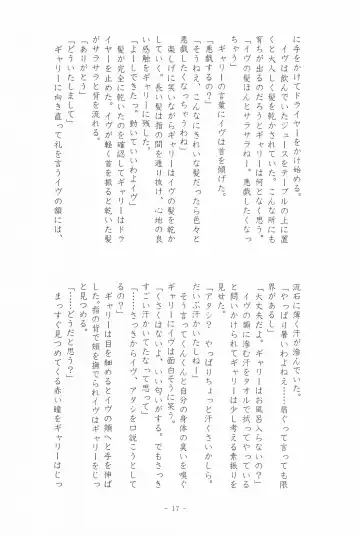 に手をかけてドライヤーをかけ始める。
イヴは飲んでいたジュースをテーブルの上に置
くと大人しく髪を乾かされていた。こんな所にも
育ちが出るのだろうとギャリーは何となく思う。
「イヴの髪ほんとサラサラねー。悪戯したくなっ
ちゃう」
ギャリーの言葉にイヴは首を傾げた。
「悪戯するの?」
「そうねえ、こんなにきれいな髪だったら色々と
悪戯したくなっちゃうわね」
楽しげに笑いながらギャリーはイヴの髪を乾か
していく。長い髪は指の間を通り抜け、心地の良
い感触をギャリーに残した。
「よーしできたっ。動いていいわよイヴ」
髪が完全に乾いたのを確認してギャリーはドラ
イヤーを止めた。イヴが軽く首を振ると乾いた髪
がサラサラと背を流れる。
「ありがとう」
「どういたしまして」
ギャリーに向き直って礼を言うイヴの額には、
流石に薄く汗が滲んでいた。
「やっぱり暑いわよねえ……扇ぐって言っても限
界があるし」
「大丈夫だよ。ギャリーはお風呂入らないの?」
イヴの額に滲む汗をタオルで拭ってやっている
と問いかけられてギャリーは少し考える素振りを
見せた。
「アタシ? やっぱりちょっと汗くさいかしら。
だいぶ汗かいたしねー」
そう言ってくんくんと自分の身体の臭いを嗅ぐ
ギャリーにイヴは面白そうに笑う。
「くさくはないよ、いい匂いがする。でもさっき
すごい汗かいてたな」って思って」
「……さっきからイヴ、アタシを口説こうとして
るの?」
ギャリーは目を細めるとイヴの頬へと手を伸ば
した。指の背で頬を撫でられてイヴはギャリーをじっ
と見つめる。
「……どうだと思う?」
まっすぐ見つめてくる赤い瞳をギャリーはじっ
- 17 -